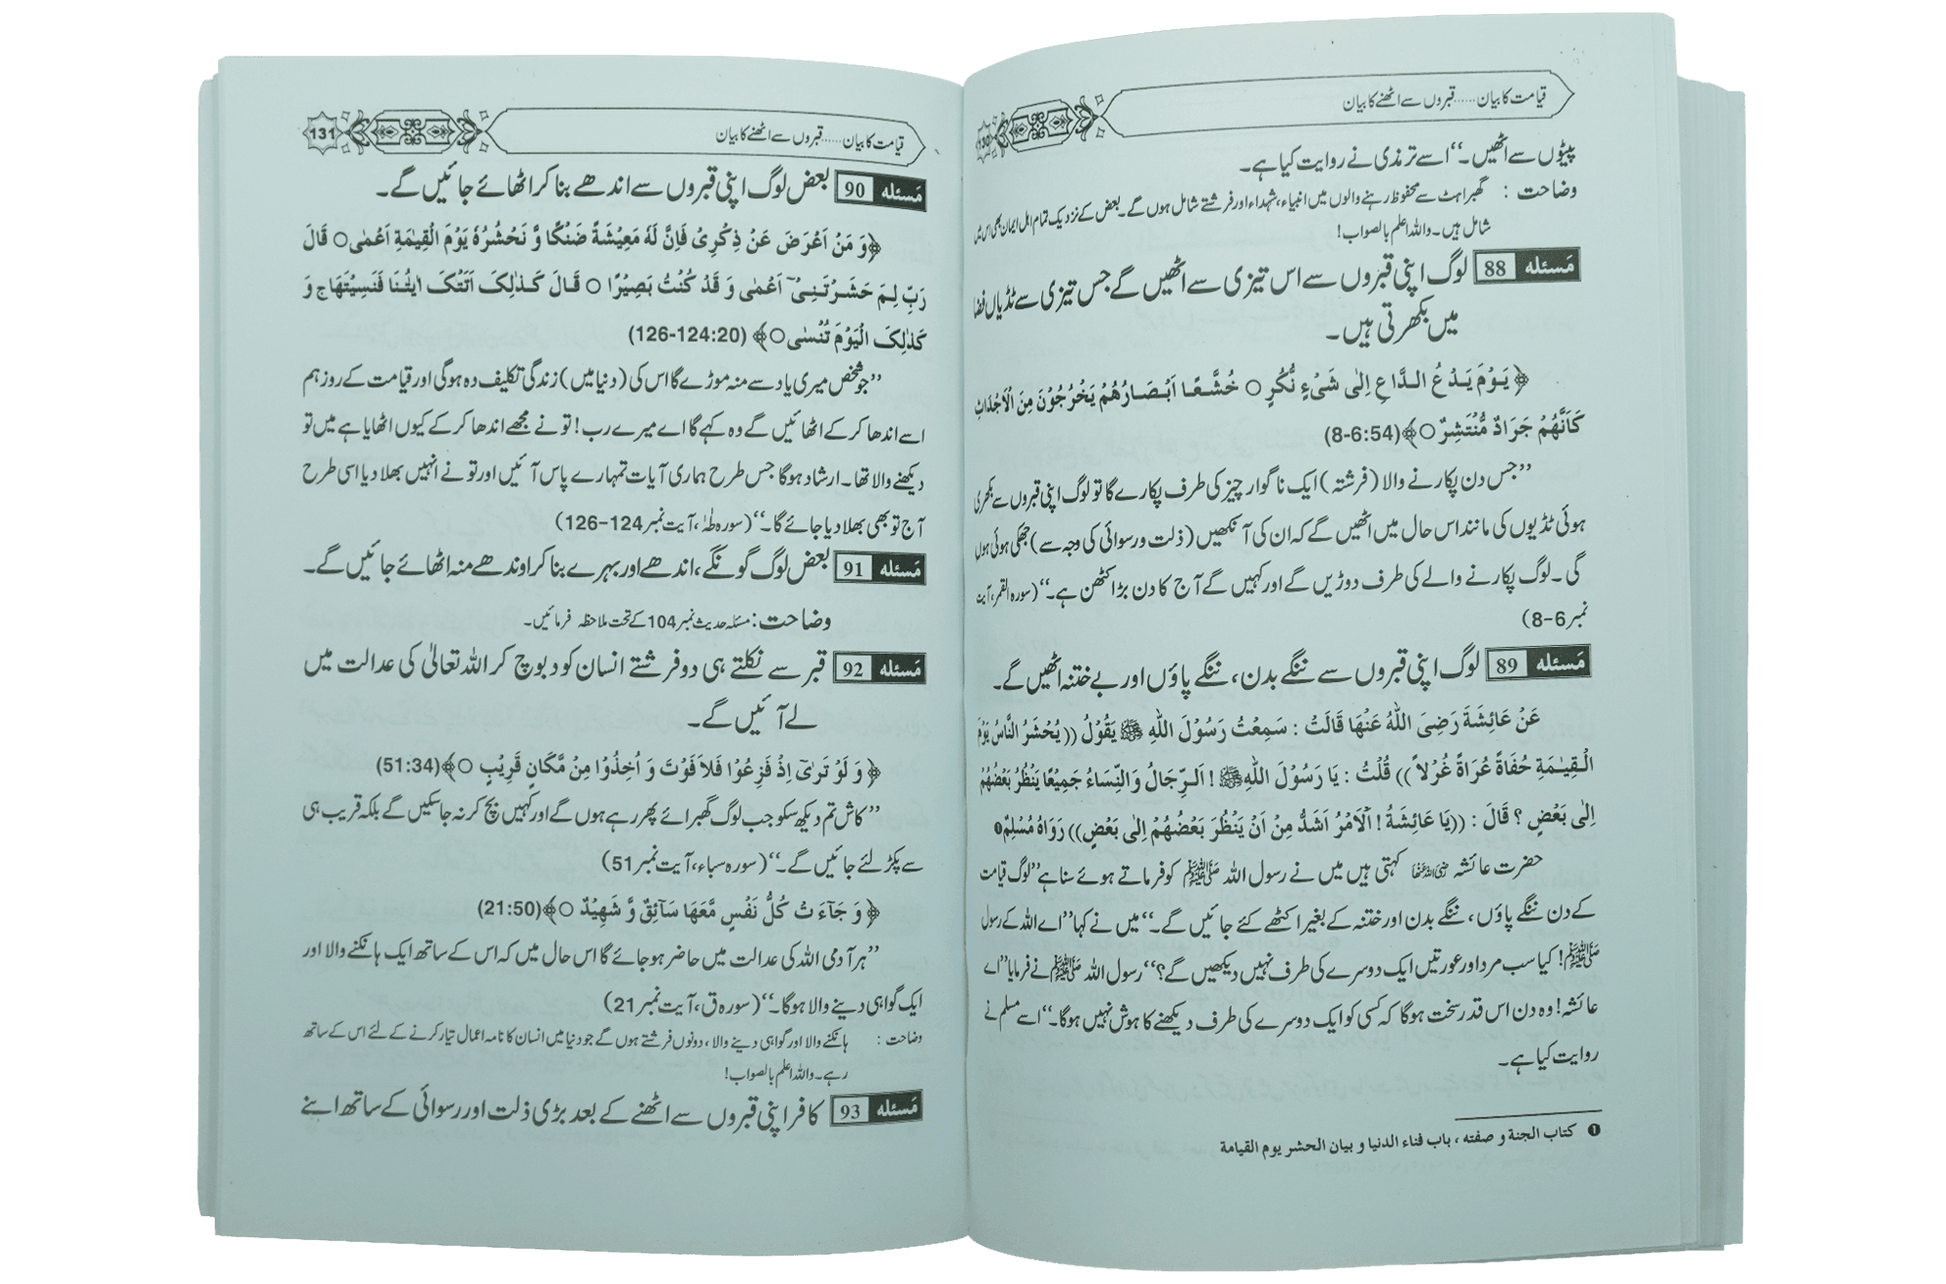 قیامت کا بیان ...... قبروں سے اٹھنے کا بیان
130
پیٹوں سے اٹھیں۔‘‘ اسے ترمذی نے روایت کیا ہے۔
وضاحت : گھبراہٹ سے محفوظ رہنے والوں میں انبیاء، شہداء اور فرشتے شامل ہوں گے۔ بعض کے نزدیک تمام اہل ایمان بھی اس میں
شامل ہیں۔ واللہ اعلم بالصواب!
مَسئله 88 لوگ اپنی قبروں سے اس تیزی سے اٹھیں گے جس تیزی سے ٹڈیاں فضا
میں بکھرتی ہیں۔
﴿ یَوْمَ یَدْعُ الدَّاعِ اِلٰی شَیْءٍ نُّکُرٍ ○ خُشَّعًا اَبْصَارُهُمْ یَخْرُجُوْنَ مِنَ الْاَجْدَاثِ
کَاَنَّهُمْ جَرَادٌ مُّنْتَشِرٌ ○﴾(8-6:54)
’’جس دن پکارنے والا (فرشتہ) ایک ناگوار چیز کی طرف پکارے گا تو لوگ اپنی قبروں سے بکھری
ہوئی ٹڈیوں کی مانند اس حال میں اٹھیں گے کہ ان کی آنکھیں (ذلت ورسوائی کی وجہ سے) جھکی ہوئی ہوں
گی۔ لوگ پکارنے والے کی طرف دوڑیں گے اور کہیں گے آج کا دن بڑا کٹھن ہے۔‘‘ (سورہ القمر، آیت
نمبر 6-8)
مَسئله 89 لوگ اپنی قبروں سے ننگے بدن، ننگے پاؤں اور بے ختنہ اٹھیں گے۔
عَنْ عَائِشَةَ رَضِیَ اللّٰهُ عَنْهَا قَالَتْ : سَمِعْتُ رَسُوْلَ اللّٰهِ ﷺ یَقُوْلُ ((یُحْشَرُ النَّاسُ یَوْمَ
الْقِیٰمَةِ حُفَاةً عُرَاةً غُرْلاً )) قُلْتُ : یَا رَسُوْلَ اللّٰهِ ﷺ ! اَلرِّجَالُ وَالنِّسَاءُ جَمِیْعًا یَنْظُرُ بَعْضُهُمْ
اِلٰی بَعْضٍ ؟ قَالَ : ((یَا عَائِشَةُ ! اَلْاَمْرُ اَشَدُّ مِنْ اَنْ یَنْظُرَ بَعْضُهُمْ اِلٰی بَعْضٍ)) رَوَاهُ مُسْلِمٌ❶
حضرت عائشہ رضی اللہ عنہا کہتی ہیں میں نے رسول اللہ ﷺ کو فرماتے ہوئے سنا ہے ’’لوگ قیامت
کے دن ننگے پاؤں، ننگے بدن اور ختنہ کے بغیر اکٹھے کئے جائیں گے۔‘‘ میں نے کہا ’’اے اللہ کے رسول
ﷺ! کیا سب مرد اور عورتیں ایک دوسرے کی طرف نہیں دیکھیں گے؟‘‘ رسول اللہ ﷺ نے فرمایا ’’اے
عائشہ! وہ دن اس قدر سخت ہوگا کہ کسی کو ایک دوسرے کی طرف دیکھنے کا ہوش نہیں ہوگا۔‘‘ اسے مسلم نے
روایت کیا ہے۔
❶ کتاب الجنة و صفته ، باب فناء الدنیا و بیان الحشر یوم القیامة
قیامت کا بیان ...... قبروں سے اٹھنے کا بیان
131
مَسئله 90 بعض لوگ اپنی قبروں سے اندھے بنا کر اٹھائے جائیں گے۔
﴿وَ مَنْ اَعْرَضَ عَنْ ذِکْرِیْ فَاِنَّ لَهٗ مَعِیْشَةً ضَنْکًا وَّ نَحْشُرُهٗ یَوْمَ الْقِیٰمَةِ اَعْمٰی○ قَالَ
رَبِّ لِمَ حَشَرْتَنِیْٓ اَعْمٰی وَ قَدْ کُنْتُ بَصِیْرًا ○ قَالَ کَذٰلِکَ اَتَتْکَ اٰیٰتُنَا فَنَسِیْتَهَا ج وَ
کَذٰلِکَ الْیَوْمَ تُنْسٰی○﴾ (126-124:20)
’’جو شخص میری یاد سے منہ موڑے گا اس کی (دنیا میں) زندگی تکلیف دہ ہوگی اور قیامت کے روز ہم
اسے اندھا کر کے اٹھائیں گے وہ کہے گا اے میرے رب! تو نے مجھے اندھا کر کے کیوں اٹھایا ہے میں تو
دیکھنے والا تھا۔ ارشاد ہوگا جس طرح ہماری آیات تمہارے پاس آئیں اور تو نے انہیں بھلا دیا اسی طرح
آج تو بھی بھلا دیا جائے گا۔‘‘ (سورہ طٰہٰ، آیت نمبر 124-126)
مَسئله 91 بعض لوگ گونگے، اندھے اور بہرے بنا کر اوندھے منہ اٹھائے جائیں گے۔
وضاحت : مسئلہ حدیث نمبر 104 کے تحت ملاحظہ فرمائیں۔
مَسئله 92 قبر سے نکلتے ہی دو فرشتے انسان کو دبوچ کر اللہ تعالیٰ کی عدالت میں
لے آئیں گے۔
﴿ وَ لَوْ تَرٰیٓ اِذْ فَزِعُوْا فَلاَ فَوْتَ وَ اُخِذُوْا مِنْ مَّکَانٍ قَرِیْبٍ ○﴾(51:34)
’’کاش تم دیکھ سکو جب لوگ گھبرائے پھر رہے ہوں گے اور کہیں بچ کر نہ جا سکیں گے بلکہ قریب ہی
سے پکڑ لئے جائیں گے۔‘‘ (سورہ سباء، آیت نمبر 51)
﴿ وَ جَآءَ تْ کُلُّ نَفْسٍ مَّعَهَا سَآئِقٌ وَّ شَهِیْدٌ ○﴾(21:50)
’’ہر آدمی اللہ کی عدالت میں حاضر ہو جائے گا اس حال میں کہ اس کے ساتھ ایک ہانکنے والا اور
ایک گواہی دینے والا ہوگا۔‘‘ (سورہ ق، آیت نمبر 21)
وضاحت : ہانکنے والا اور گواہی دینے والا، دونوں فرشتے ہوں گے جو دنیا میں انسان کا نامہ اعمال تیار کرنے کے لئے اس کے ساتھ
رہے۔ واللہ اعلم بالصواب!
مَسئله 93 کافر اپنی قبروں سے اٹھنے کے بعد بڑی ذلت اور رسوائی کے ساتھ اپنے